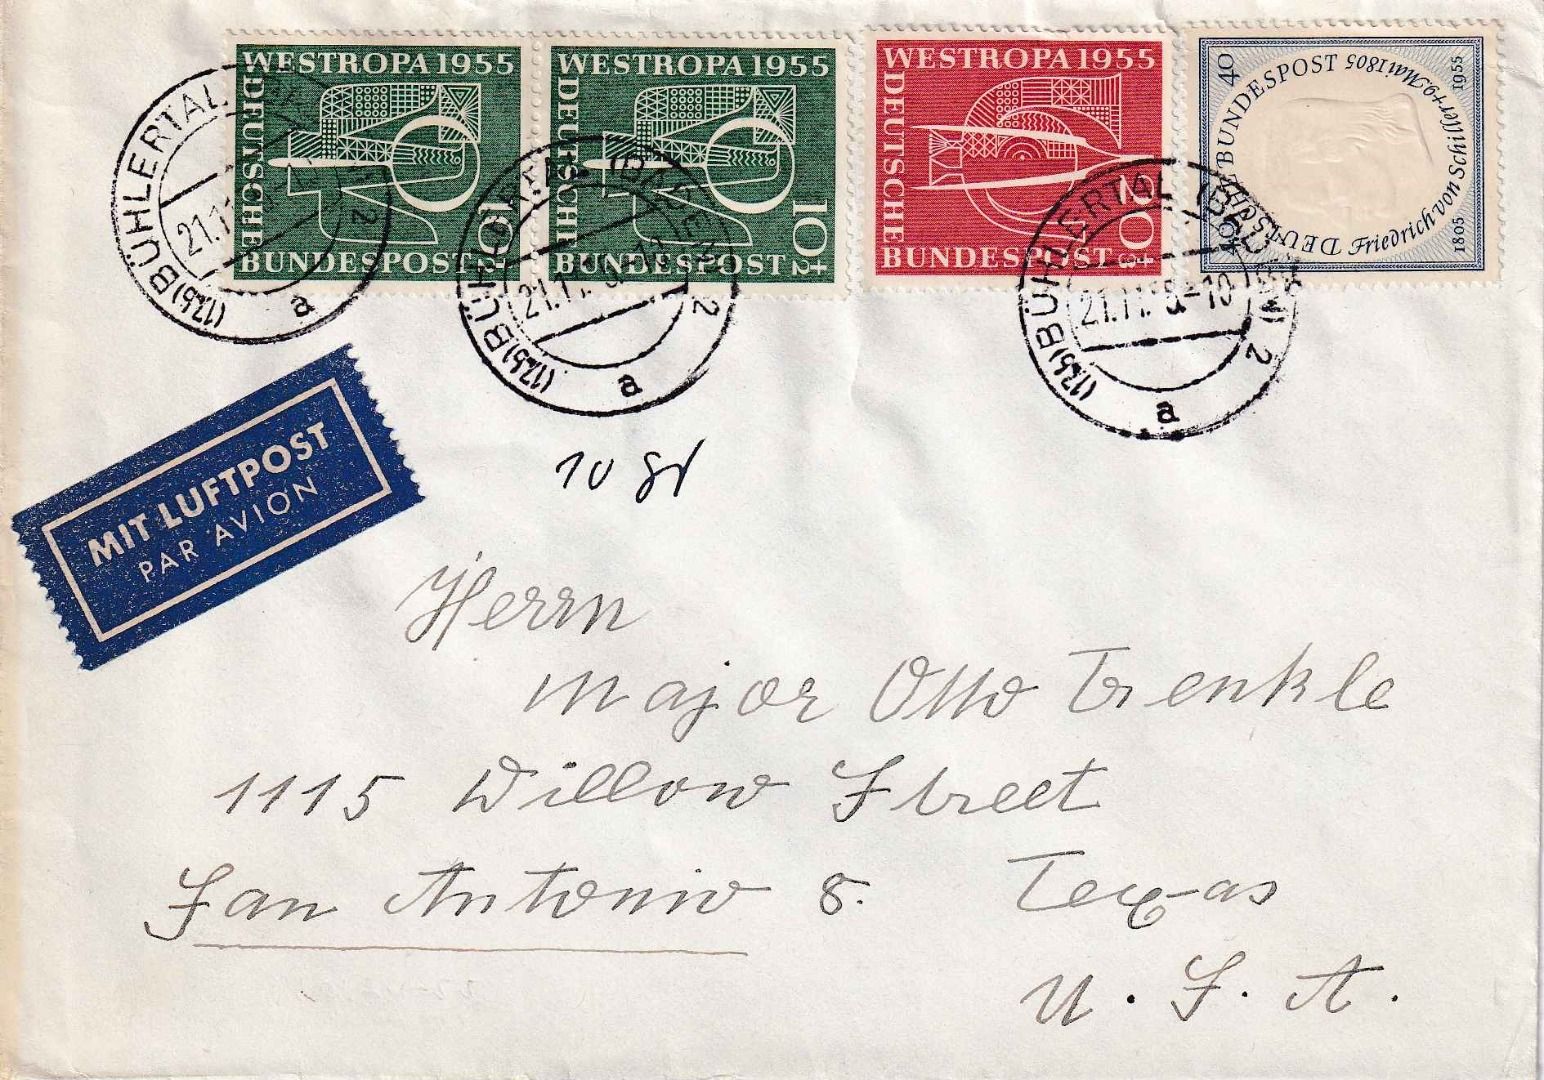 WESTROPA 1955
DEUTSCHE
BUNDESPOST
10+2
WESTROPA 1955
DEUTSCHE
BUNDESPOST
10+2
WESTROPA 1955
DEUTSCHE
BUNDESPOST
20+3
40 DEUTSCHE BUNDESPOST 40
Friedrich von Schiller + 9. Mai 1805
1805 1955
(17b) BÜHLERTAL
21.11
a
2
(17b) BÜHLERTAL (BADEN) 2
21.11
a
(17b) BÜHLERTAL (BADEN) 2
21.11. -10
a
MIT LUFTPOST
PAR AVION
10 gr
Herrn
Major Otto Trenkle
1115 Willow Street
San Antonio 8. Texas
U. S. A.